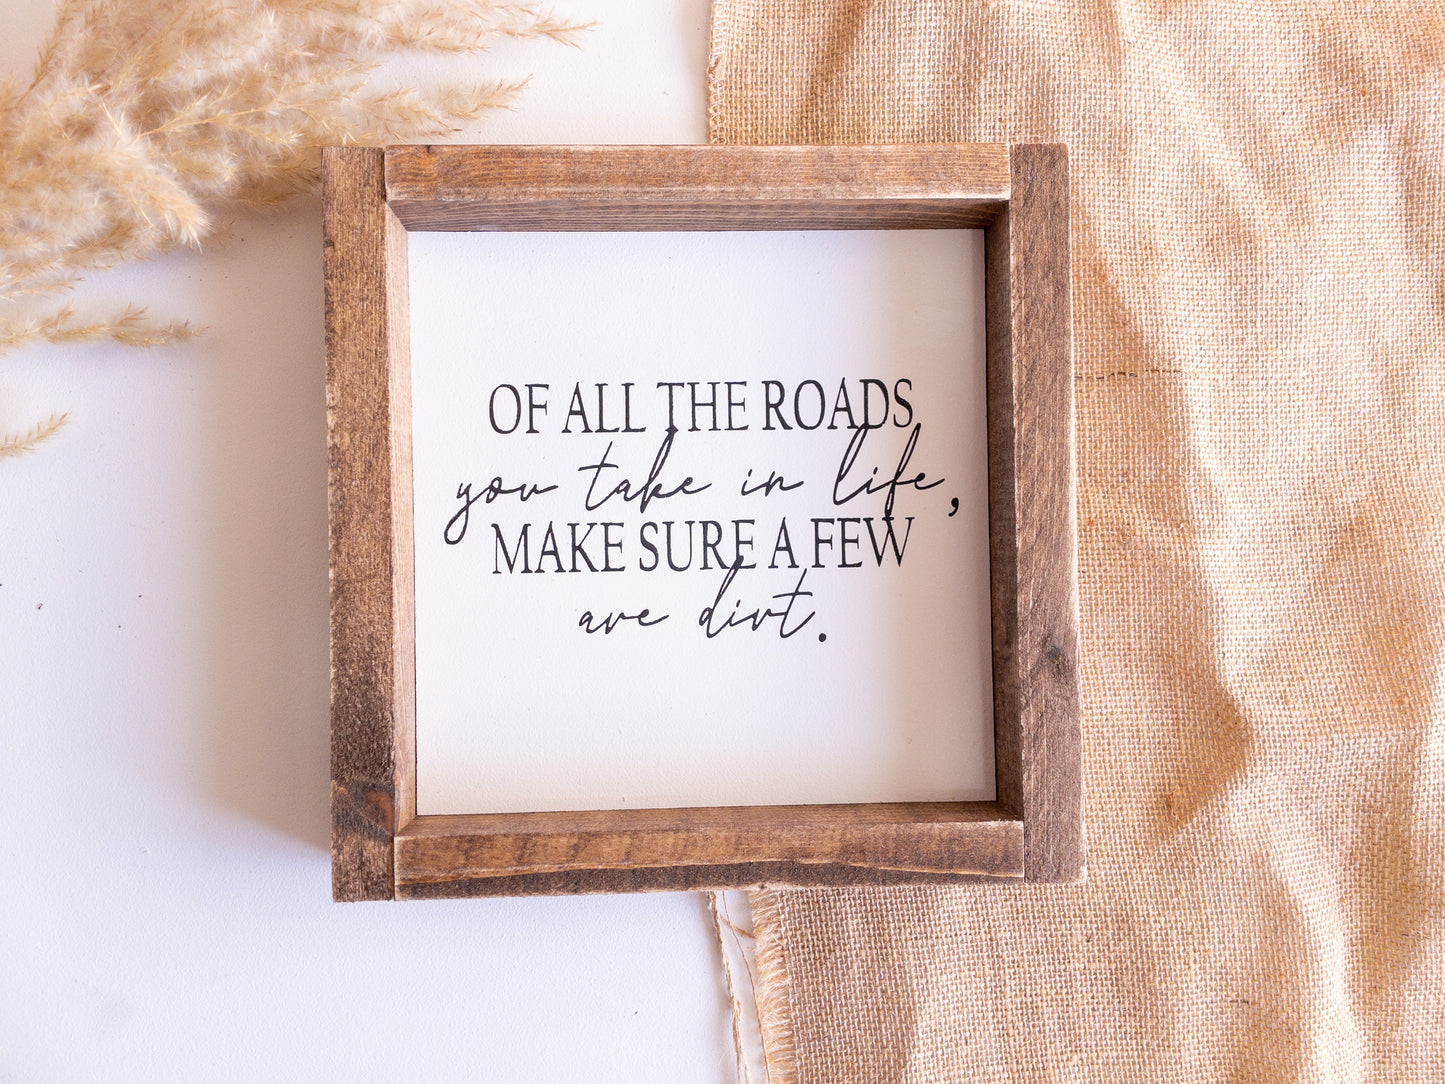 OF ALL THE ROADS
you take in life,
MAKE SURE A FEW
are dirt.